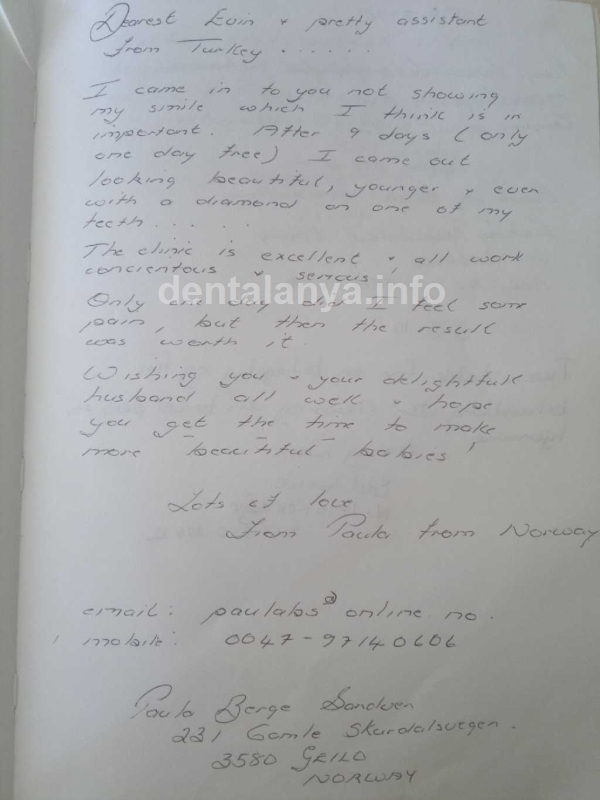 Dearest Evin + pretty assistant
from Turkey . . . . . .
I came in to you not showing
my smile which I think is in
important. After 9 days (only
one day free) I came out
looking beautiful, younger + even
with a diamond on one of my
teeth . . . . .
The clinic is excellent + all work
concientous + serious!
dentalanya.info
Only one day did I feel some
pain, but then the result
was worth it.
Wishing you + your delightfull
husband all well + hope
you get the time to make
more beautiful babies!
Lots of love
from Paula from Norway
email: paulabs@online no.
mobile: 0047-97140606
Paula Berge Sandven
231 Gamle Skurdalsvegen.
3580 GEILO
NORWAY